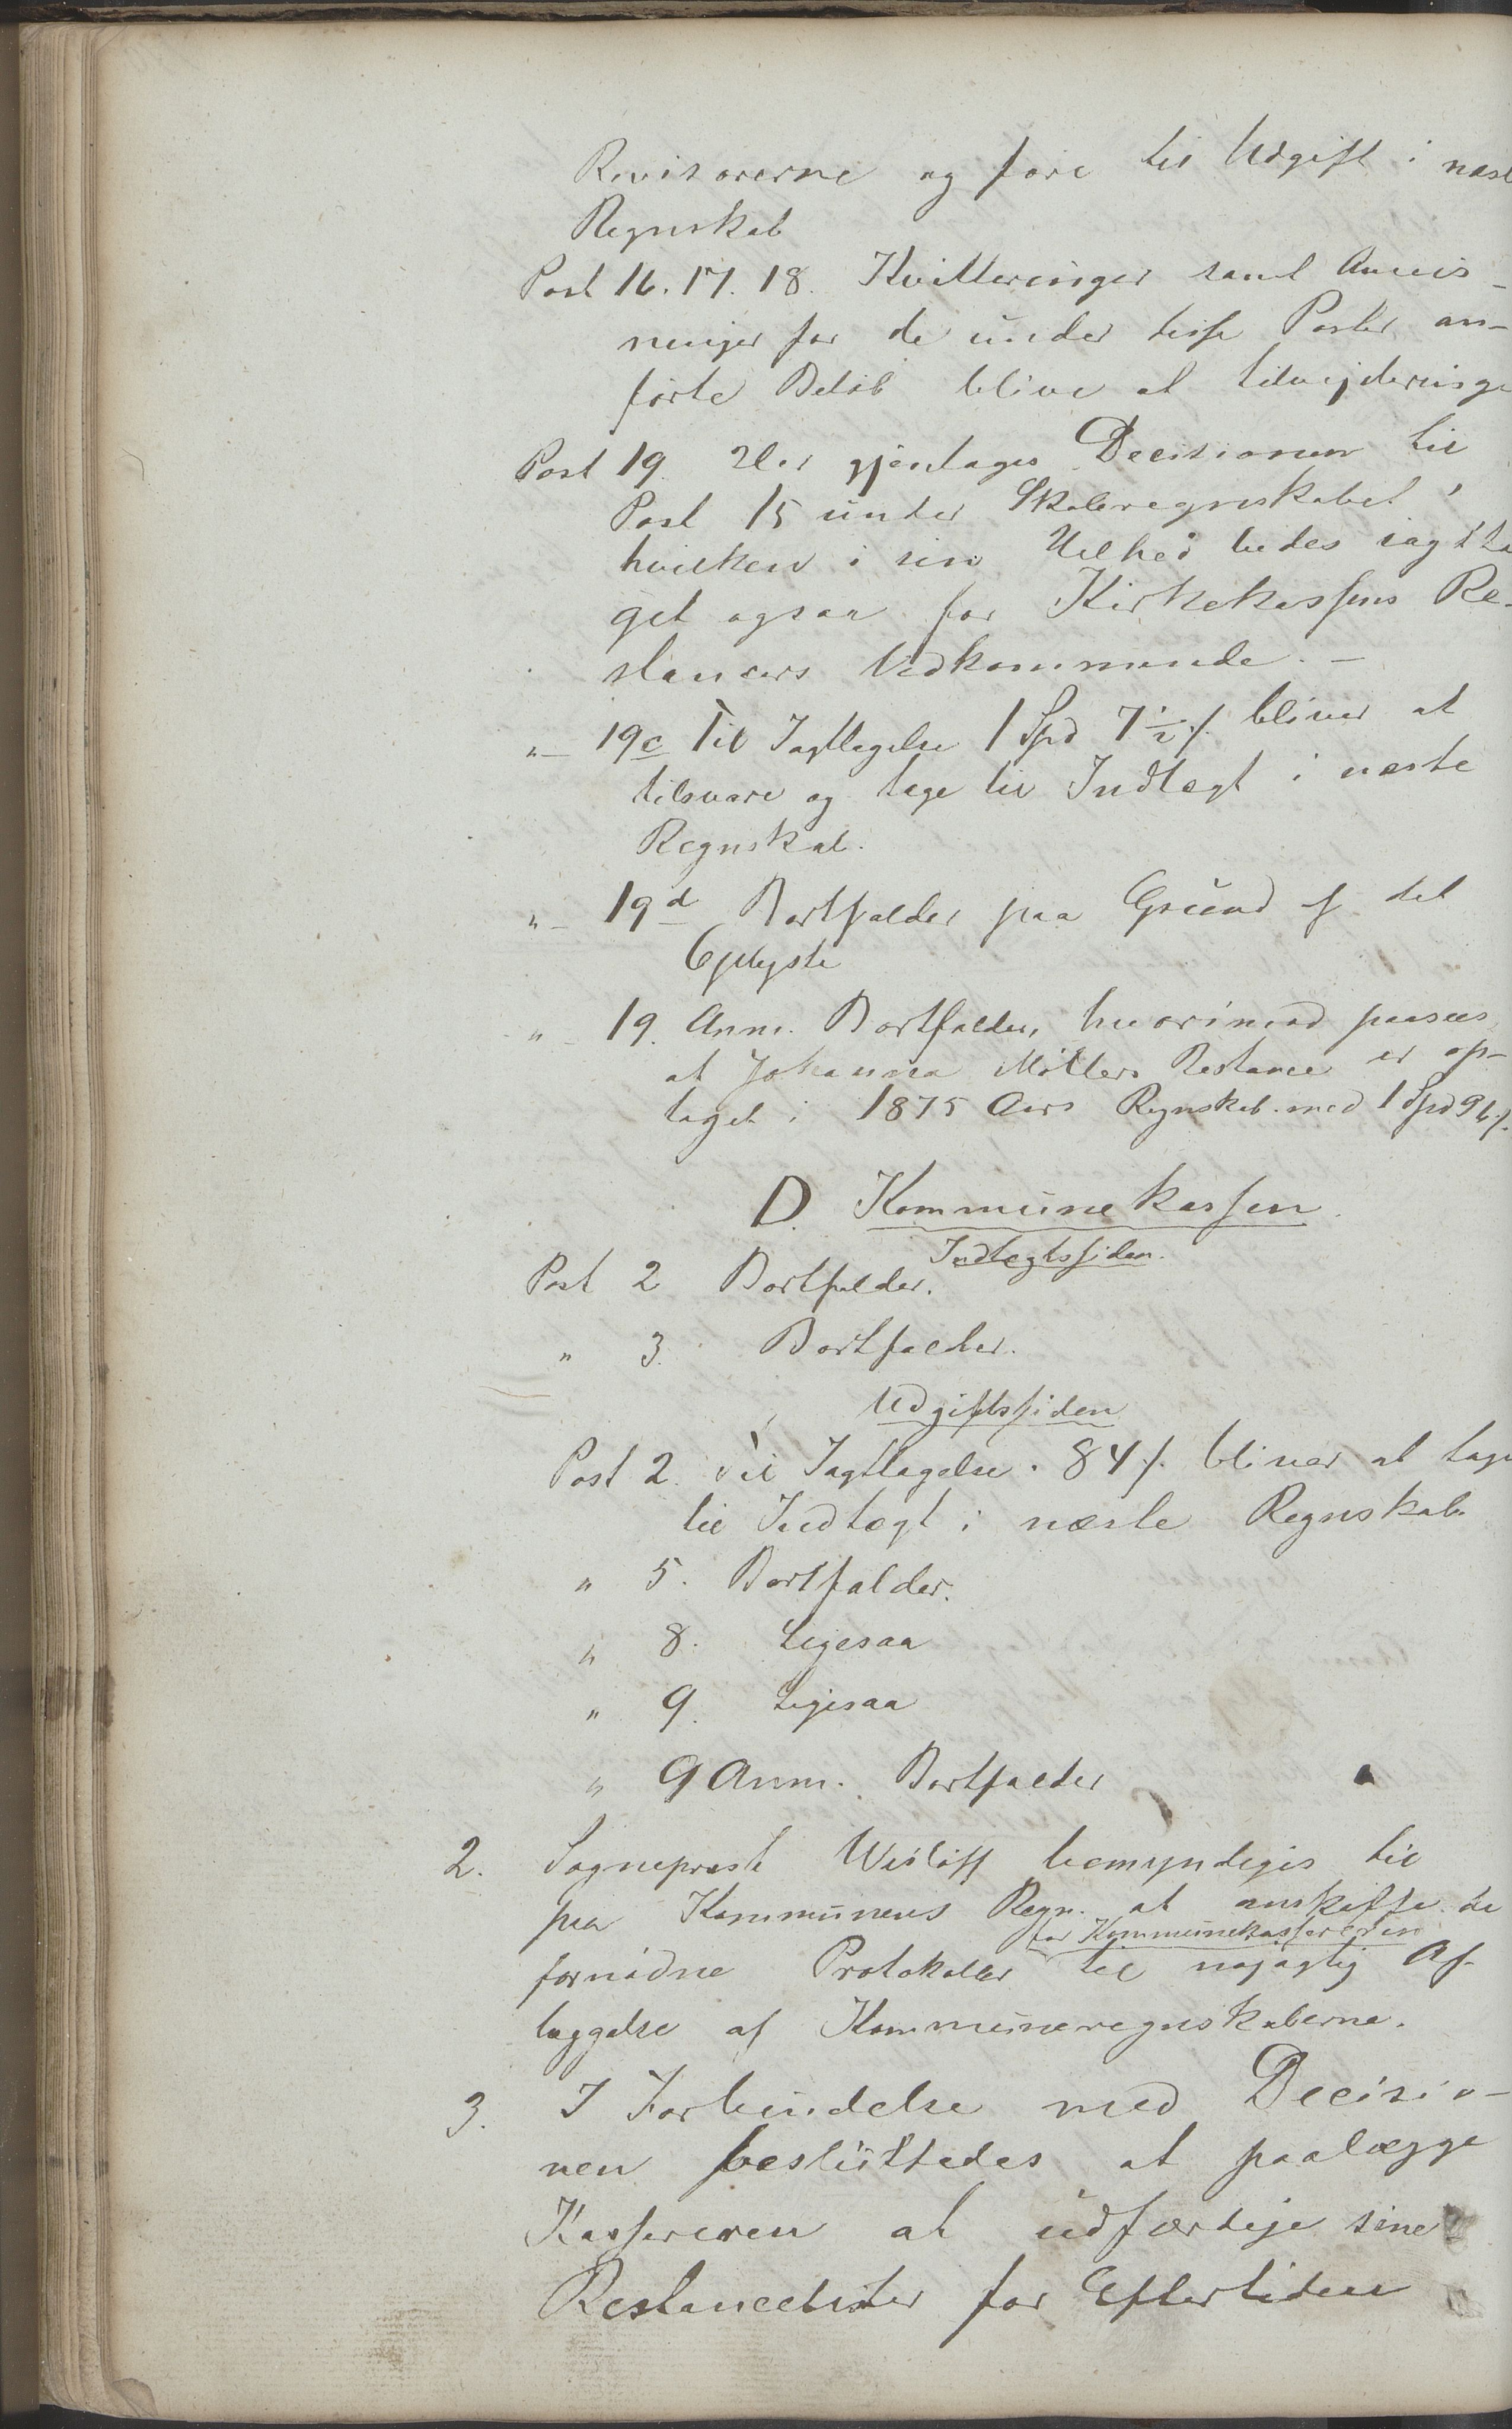 Revisorerne og føre til Udgift i næst
Regnskab
Post 16. 17. 18. Kvitteringer samt Anvis-
ninger for de under disse Poster an-
førte Beløb blive at tilvejebringe
Post 19. Her gjentages Decisionen til
Post 15 under Skoleregnskabet,
hvilken i sin Helhed bedes iagtta
get ogsaa for Kirkekassens Re-
stancers Vedkommende. -
" - 19c Til Iagttagelse 1 Spd 7½ s. bliver at
tilsvare og tage til Indtægt i næste
Regnskab.
" - 19d Bortfalder paa Grund af det
Oplyste
" - 19. Anm. Bortfalder, hvorimod paasees
at Johanna Møllers Restance er op-
taget i 1875 Aars Regnskab med 1 Spd 96 s.
D. Kommunekassen.
Indtægtssiden.
Post 2 Bortfalder.
" 3. Bortfalder.
Udgiftssiden
Post 2. Til Iagttagelse. 84 s. bliver at tage
til Indtægt i næste Regnskab
" 5. Bortfalder.
" 8. Ligesaa
" 9. Ligesaa
" 9 Anm. Bortfalder
2. Sogneprest Wisløff bemyndiges til
paa Kommunens Regn. at anskaffe de
for Kommunekassereren
fornødne Protokoller til nøjagtig Af-
læggelse af Kommuneregnskaberne.
3. I Forbindelse med Decisio-
nen besluttedes at paalægge
Kassereren at udfærdige sine
Restancelister for Eftertiden